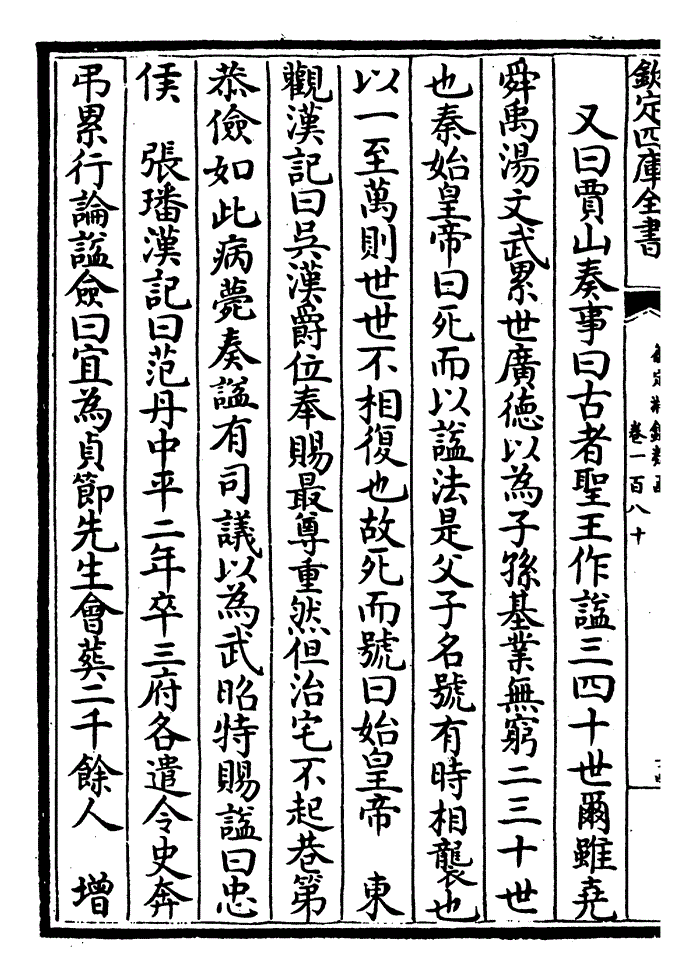 欽定四庫全書
卷一百八十
又曰賈山奏事曰古者聖王作諡三四十世爾雖堯
舜禹湯文武累世廣徳以為子孫基業無窮二三十世
也秦始皇帝曰死而以諡法是父子名號有時相襲也
以一至萬則世世不相復也故死而號曰始皇帝　東
觀漢記曰呉漢爵位奉賜最尊重然但治宅不起巷第
恭儉如此病薨奏諡有司議以為武昭特賜諡曰忠
侯　張璠漢記曰范丹中平二年卒三府各遣令史奔
弔累行論諡僉曰宜為貞節先生會葬二千餘人　増